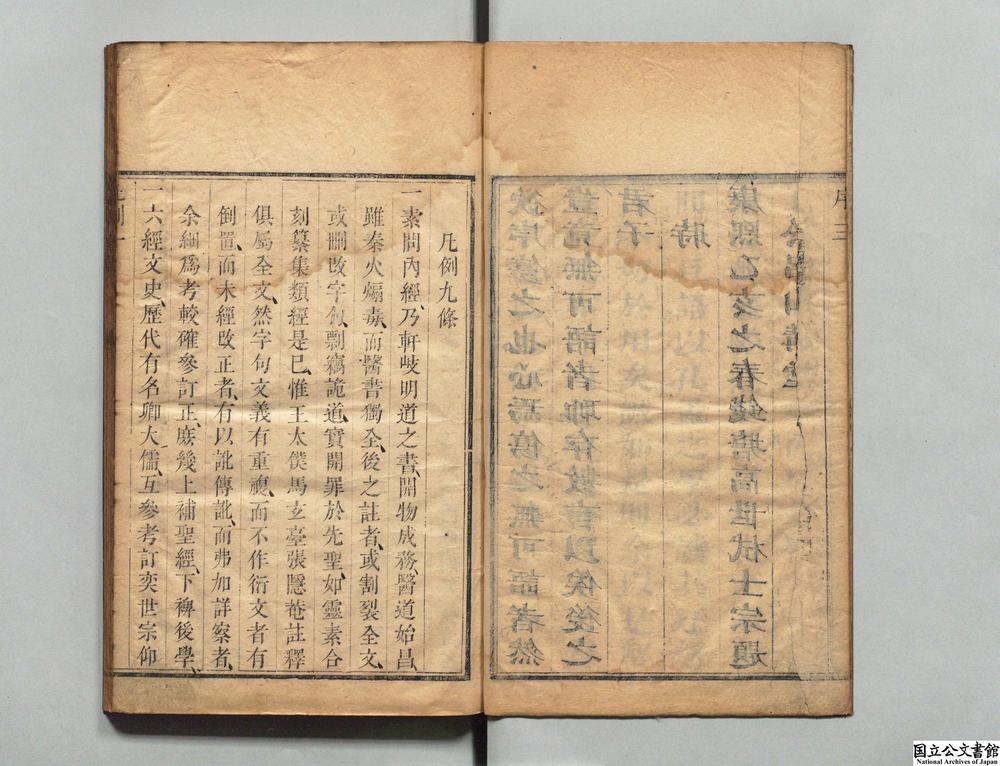 之也心焉傷之無可語者然
豈竟無可語者耶存數言以俟後之
君子
時
康熙乙亥之春錢塘高世栻士宗題
侶山講堂
序三
凡例九條
一素問內經、乃軒岐明道之書、開物成務、醫道始昌、
雖秦火煽毒、而醫書獨全、後之註者、或割裂全文、
或刪改字句、剽竊詭道、實開罪於先聖、如靈素合
刻纂集類經是已、惟王太僕馬玄臺張隱菴註釋
俱屬全文、然字句文義有重複、而不作衍文者有
倒置、而未經改正者、有以訛傳訛、而弗加詳察者、
余細爲考較確參訂正、庶幾上補聖經、下裨後學、
一六經文史、歷代有名卿大儒、互參考訂奕世宗仰
凡例一
国立公文書館
National Archives of Japan